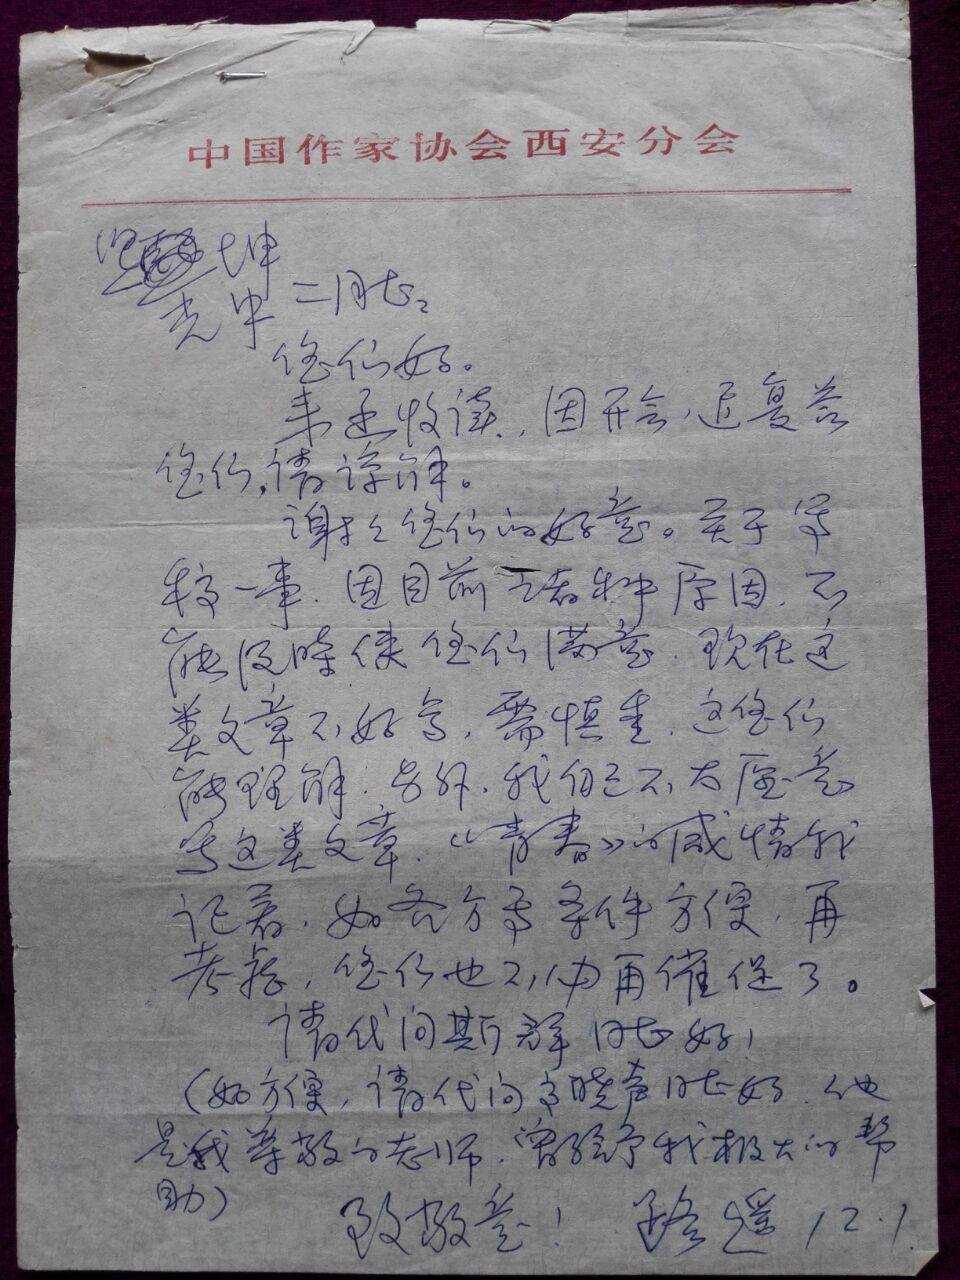 中国作家协会西安分会
坤
光中 二同志:
您们好。
来函收读,因开会,迟复
您们,请谅解。
谢谢您们的好意。关于写
稿一事,因目前各种原因,不
能及时使您们满意,现在这
类文章不好写,需慎重,这您们
能理解,另外,我自己不大愿意
写这类文章,《青春》的感情我
记着,如各方面条件方便,再
考虑,您们也不必再催促了。
请代问斯群同志好!
(如方便,请代问高晓声同志好,他
是我尊敬的老师,曾给予我极大的帮
助)
致敬意! 路遥 12.1.